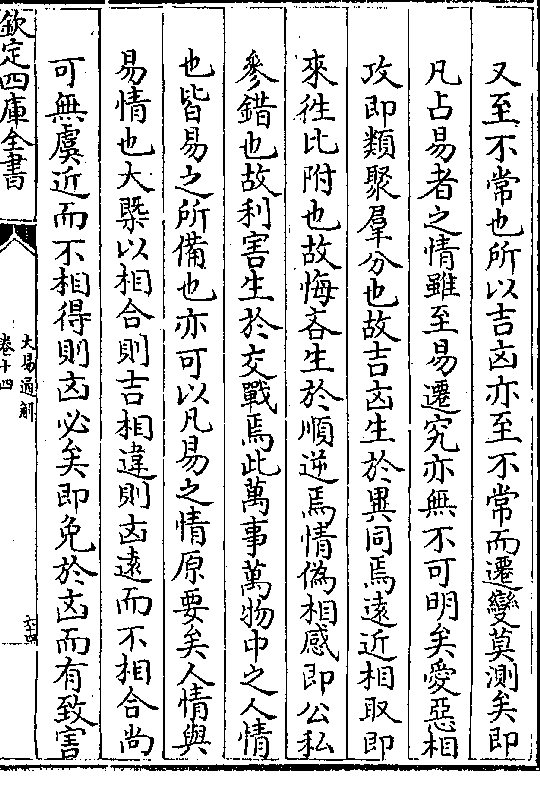 又至不常也所以吉凶亦至不常而遷變莫測矣即
凡占易者之情雖至易遷究亦無不可明矣愛惡相
攻即類聚羣分也故吉凶生於異同焉遠近相取即
來往比附也故悔吝生於順逆焉情偽相感即公私
參錯也故利害生於交戰焉此萬事萬物中之人情
也皆易之所備也亦可以凡易之情原要矣人情與
易情也大槩以相合則吉相違則凶遠而不相合尚
可無虞近而不相得則凶必矣即免於凶而有致害
欽定四庫全書
大易通解
卷十四